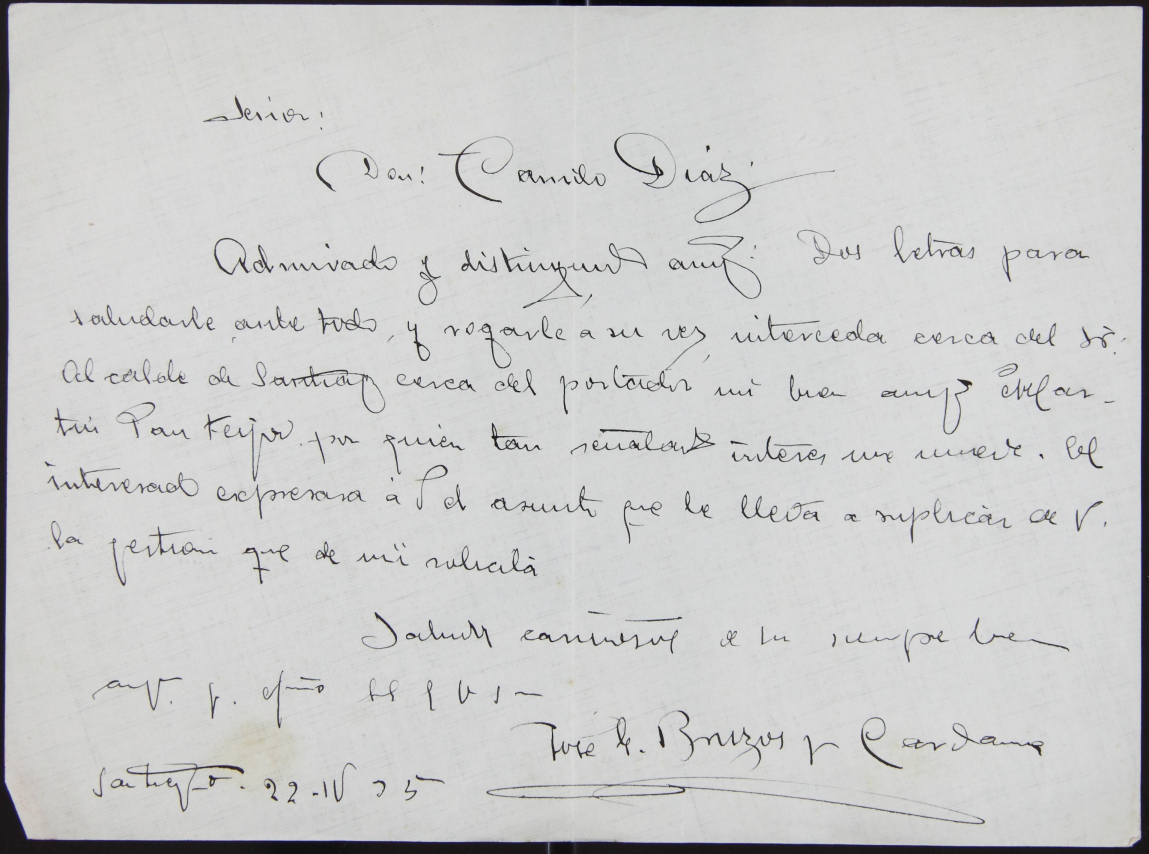 Señor:
Don: Camilo Díaz
Admirado y distinguido amigo: Dos letras para
saludarle ante todo, y rogarle a su vez, interceda cerca del Sr.
Alcalde de Santiago cerca del portador mi buen amigo Mar-
tin Pan Feijoo por quien tan señalado interes me mueve. El
interesado expresara à Vd asunto que le lleva a suplicar de V.
la gestion que de mi solicita
Saludos cariñosos de su siempre buen
amigo. y. q e s m
José L. Bruzos y Cardama
Santiago. 22-IV 35